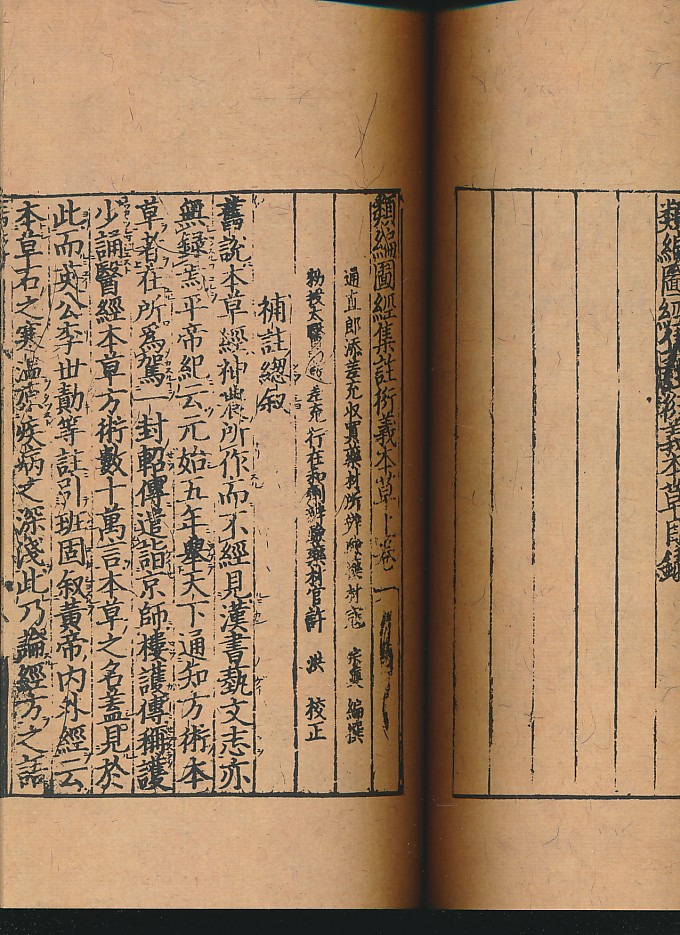 類編圖經集註衍義本草目錄
類編圖經集註衍義本草上卷一
通直郎添差充收買藥材所辨驗藥材寇宗奭編撰
勅授太醫差充行在和劑辨驗藥材官許洪校正
補註緫叙
舊說本草經神農所作而不經見漢書藝文志亦
無録焉平帝紀云元始五年舉天下通知方術本
草者在所爲駕一封軺傳遣詣京師樓護傳稱護
少誦醫經本草方術數十萬言本草之名蓋見於
此而英公李世勣等註引班固叙黃帝内外經云
本草石之寒溫原疾病之深淺此乃論經方之語